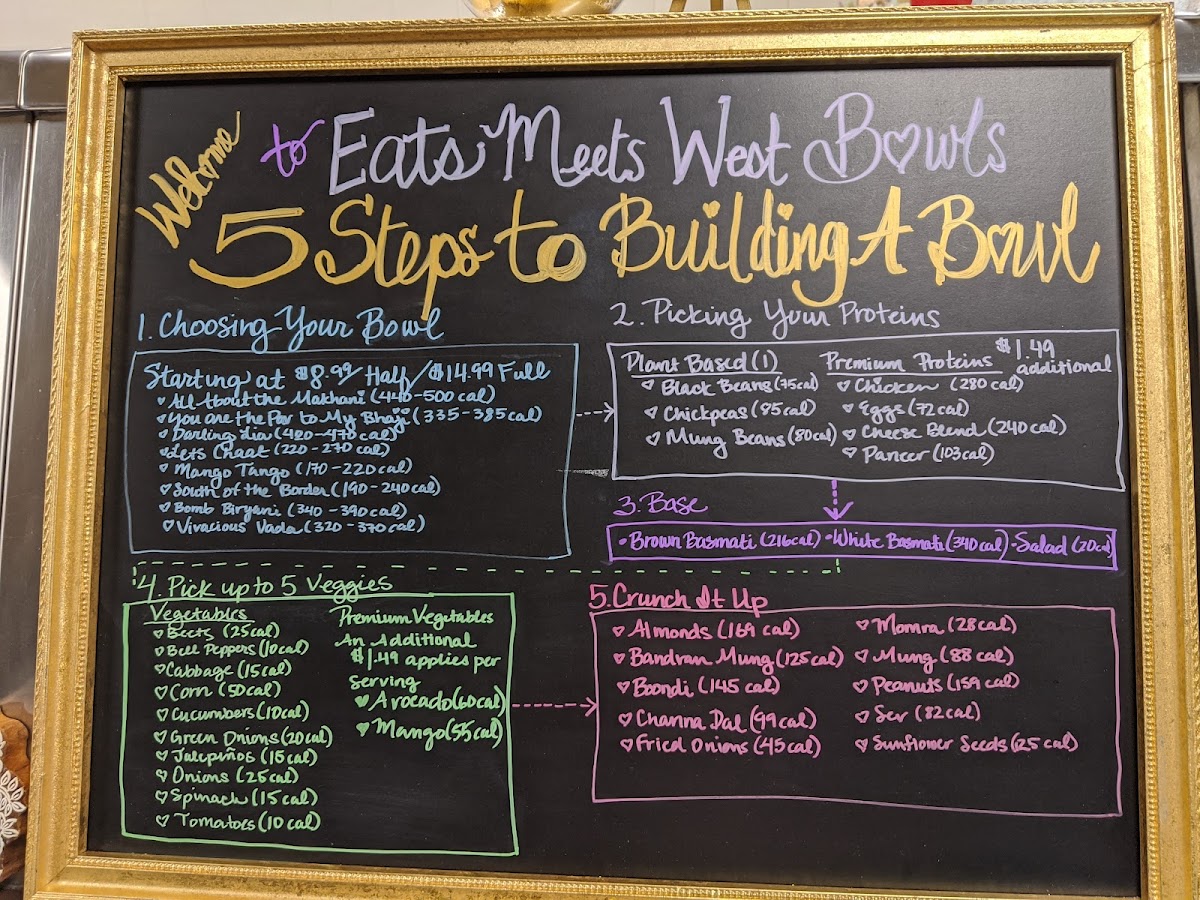 Welcome to Eats Meets West Bowls
5 Steps to Building A Bowl
1. Choosing Your Bowl
Starting at $8.99/Half/$14.99 Full
All About the Makhani (440-500 cal)
You are the Pav to My Bhaji (335-385 cal)
Darling Lia (420-470 cal)
Lets Chaat (220-270 cal)
Mango Tango (170-220 cal)
South of the Border (190-240 cal)
Bomb Biryani (340-390 cal)
Vivacious Vada (320-370 cal)
2. Picking Your Proteins
Plant Based (1)
Black Beans (75 cal)
Chickpeas (85 cal)
Mung Beans (80 cal)
Premium Proteins $1.49 additional
Chicken (280 cal)
Eggs (72 cal)
Cheese Blend (240 cal)
Paneer (103 cal)
3. Base
•Brown Basmati (216 cal) •White Basmati (340 cal) •Salad (20 cal)
4. Pick up to 5 Veggies
Vegetables
Beets (25 cal)
Bell Peppers (10 cal)
Cabbage (15 cal)
Corn (50 cal)
Cucumbers (10 cal)
Green Onions (20 cal)
Jalepiños (15 cal)
Onions (25 cal)
Spinach (15 cal)
Tomatoes (10 cal)
Premium Vegetables
An Additional
$1.49 applies per
serving
Avocado (60 cal)
Mango (55 cal)
5. Crunch It Up
Almonds (169 cal)
Bandran Mung (125 cal)
Boondi (145 cal)
Channa Dal (99 cal)
Fried Onions (45 cal)
Momra (28 cal)
Mung (88 cal)
Peanuts (159 cal)
Sev (82 cal)
Sunflower Seeds (25 cal)